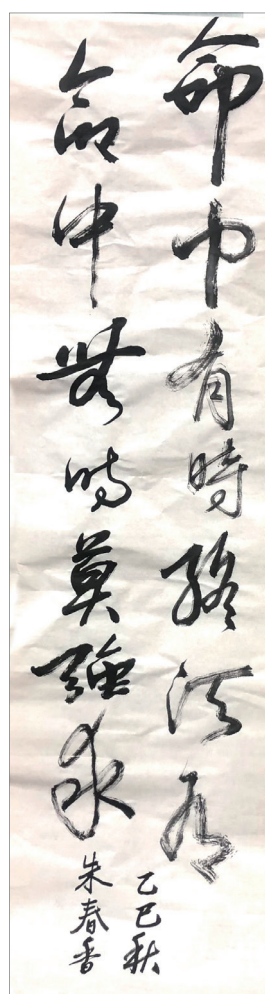 命中有時終須有
命中無時莫強求
乙巳秋
朱春香